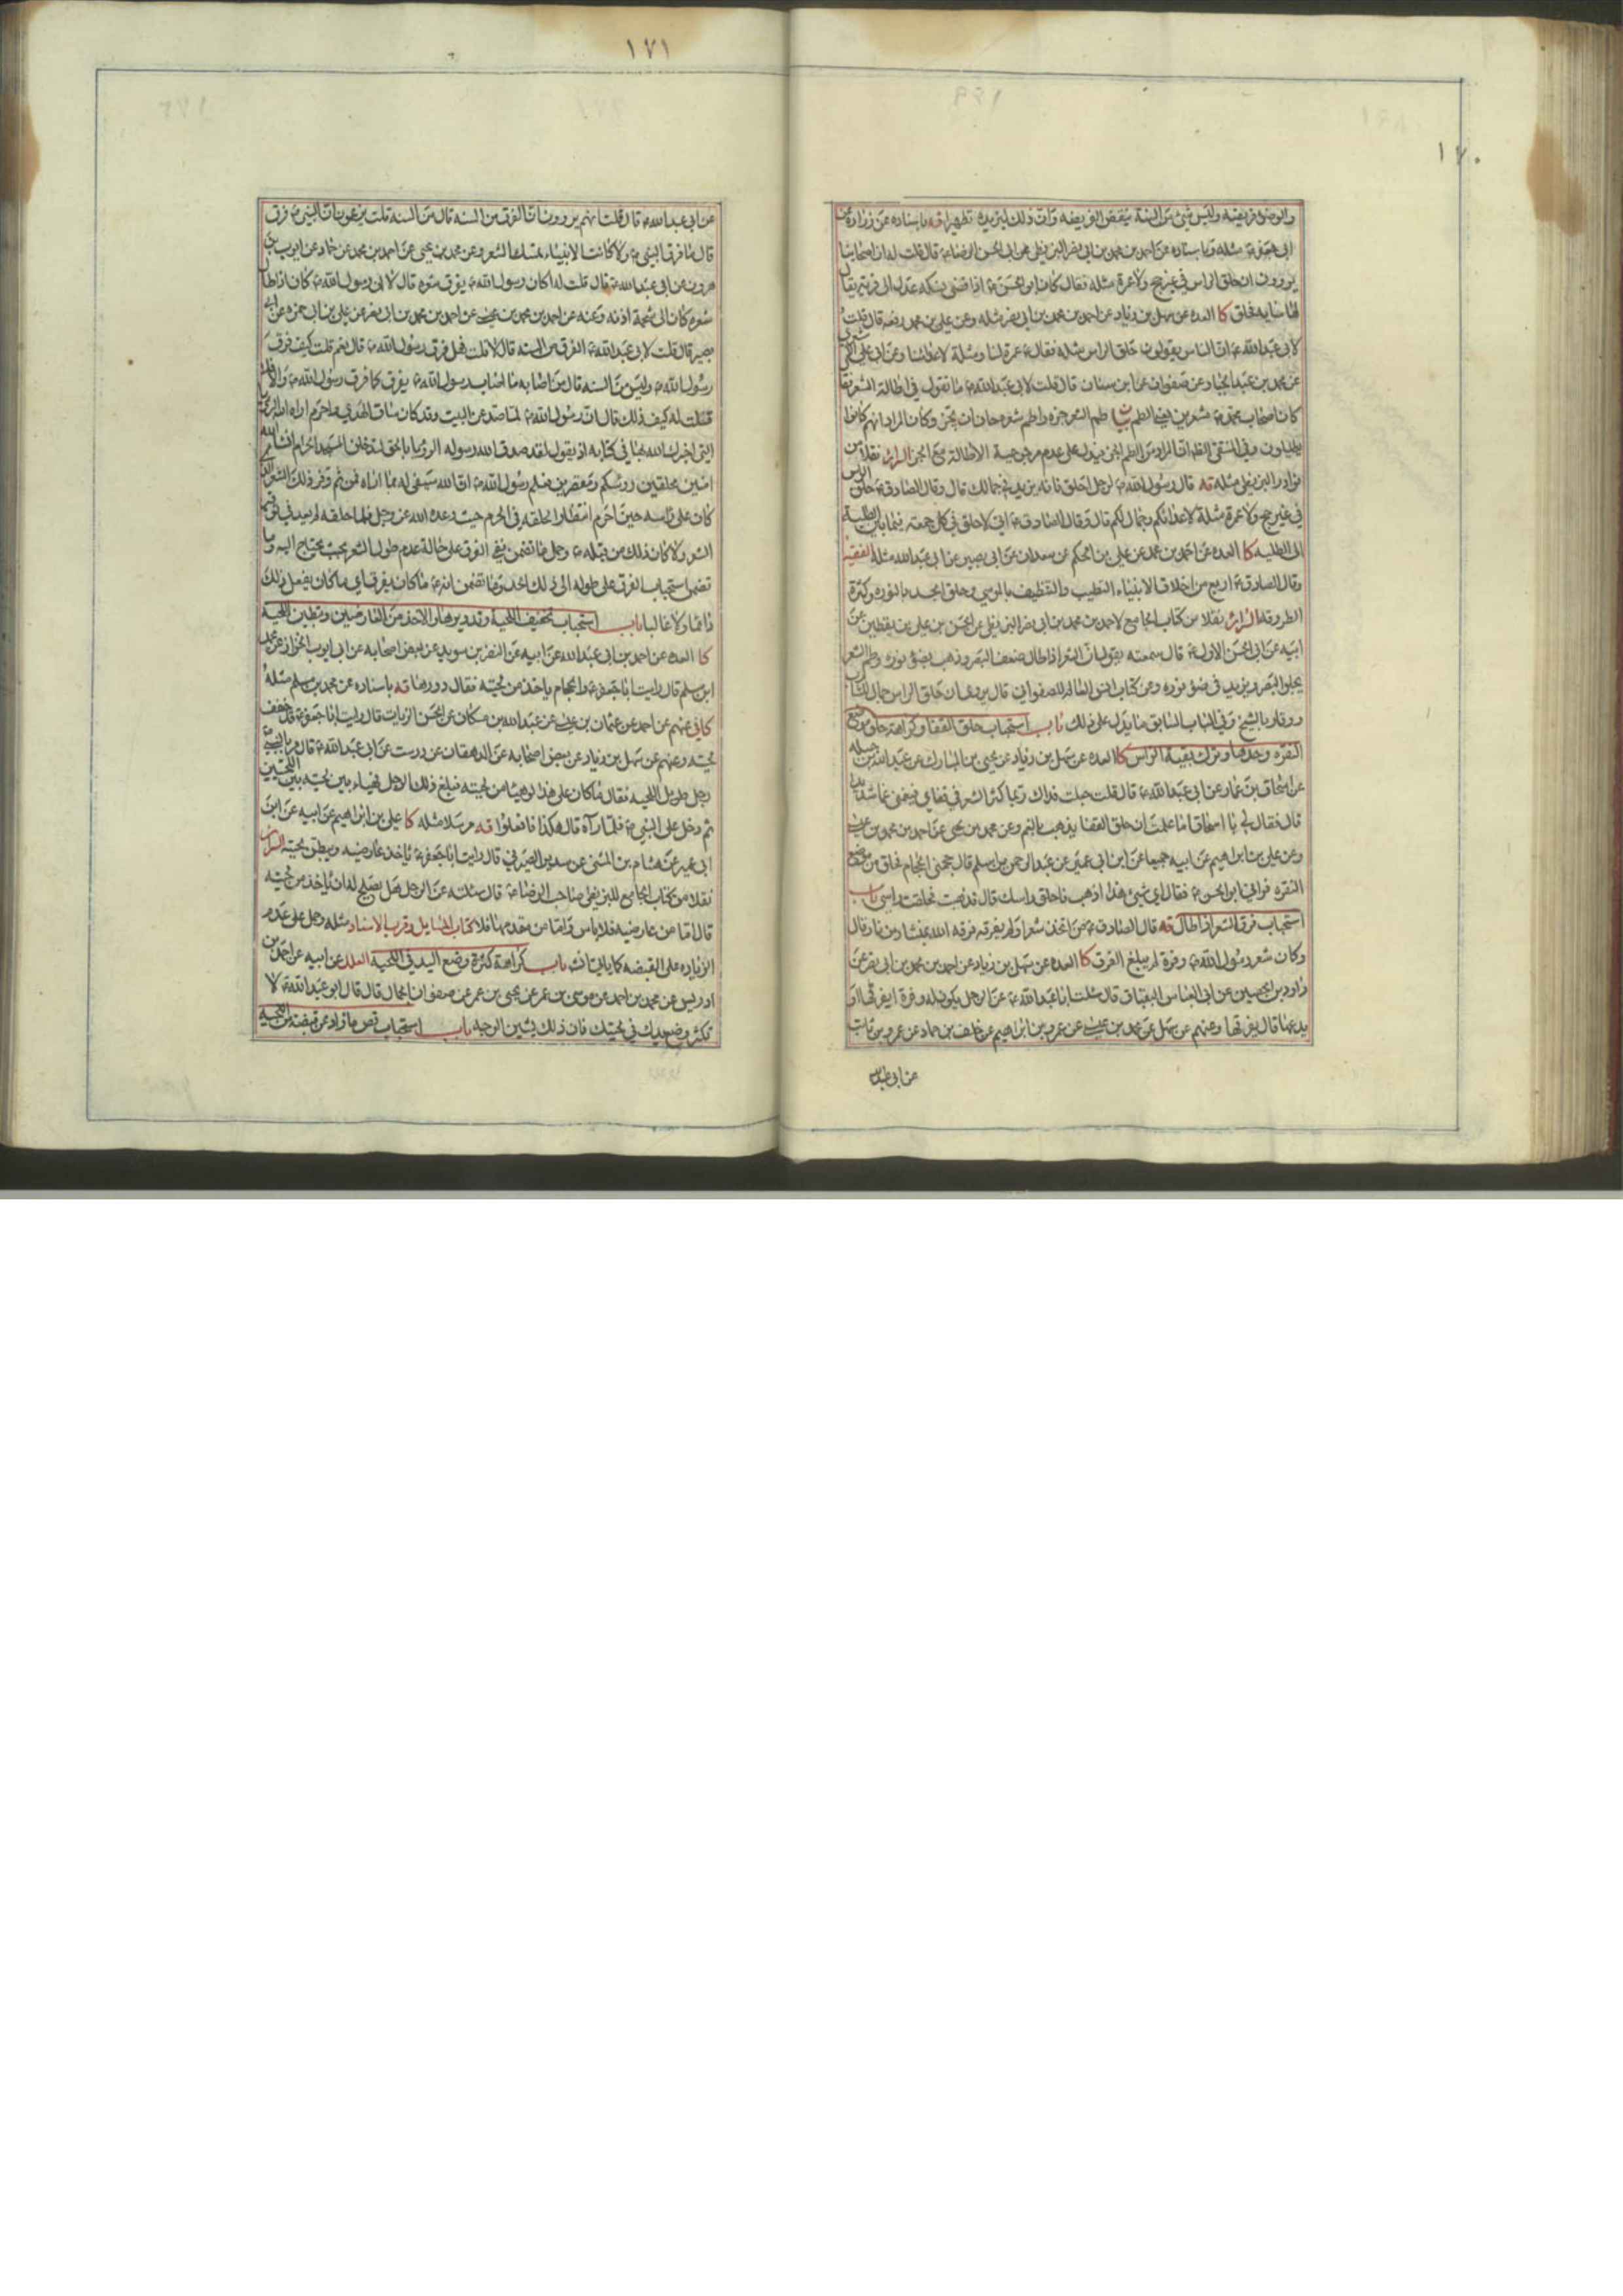 ١٧٠
والوضوء فريضة وليس شئ من السنة ينقض الفريضه وان ذلك ليزيده تطهيرا قه باسناده عن زرارة عن
ابى جعفر مثله وباسناده عن احمد بن محمد بن ابى نصر البزنطى عن ابى الحسن الرضا قال قلت له ان اصحابنا
يروون ان حلق الراس فى غير حج ولا عمرة مثله فقال كان ابو الحسن اذا قضى نسكه عدل الى قرية يقال
لها سايه فحلق كا العده عن سهل بن زياد عن احمد بن محمد بن ابى نصر مثله وعن على بن محمد رفعه قال قلت
لابى عبد الله ان الناس يقولون حلق الراس مثله فقال عمرة لنا ومثلة لاعدائنا وعن ابى على الاشعرى
عن محمد بن عبد الجبار عن صفوان عن ابن سنان قال قلت لابى عبد الله ما تقول فى اطالة الشعر فقال
كان اصحاب محمد مشعرين يعنى الطم طم الشعر جزه واطم شعره حان ان يجز وكان المراد انهم كانوا
يطيلون وفى المنتقى الظاهر ان المراد من الطم الجز فيدل على عدم مرجوحية الاطالة مع الجز السرائر نقلا من
نوادر البزنطى مثله قه قال رسول الله لرجل احلق فانه يزيد فى جمالك قال وقال الصادق حلق الراس
فى غير حج ولا عمرة مثلة لاعدائكم وجمال لكم قال وقال الصادق انى لاحلق فى كل جمعة فيما بين الطلية
الى الطليه كا العده عن احمد بن محمد عن على بن الحكم عن سعدان عن ابى بصير عن ابى عبد الله مثله الفقيه
وقال الصادق اربع من اخلاق الانبياء التطيب والتنظيف بالموسى وحلق الجسد بالنوره وكثرة
الطروقه السرائر نقلا من كتاب الجامع لاحمد بن محمد بن ابى نصر البزنطى عن الحسن بن على بن يقطين عن
ابيه عن ابى الحسن الاول قال سمعته يقول ان الشعر اذا طال ضعف البصر وذهب بضوء نوره وطم الشعر
يجلو البصر ويزيد فى ضوء نوره ومن كتاب انس العالم للصفوانى قال يروى ان حلق الراس جمال للشاب
ووقار بالشيخ وفى الباب السابق ما يدل على ذلك باب استحباب حلق القفا وكراهة حلق موضع
النقره وحدها وترك بقية الراس كا العده عن سهل بن زياد عن يحيى بن المبارك عن عبد الله بن جبلة
عن اسحاق بن عمار عن ابى عبد الله قال قلت جعلت فداك ربما كثر الشعر فى قفاى فيغمنى غما شديدا
قال فقال لى يا اسحاق اما علمت ان حلق القفا يذهب بالغم وعن محمد بن يحيى عن احمد بن محمد بن عيسى
وعن على بن ابراهيم عن ابيه جميعا عن ابن ابى عمير عن عبد الرحمن بن اسلم قال حجمنى الحجام فحلق من موضع
النقره فرانى ابو الحسن فقال اى شىء هذا اذهب فاحلق راسك قال فذهبت فحلقت راسى باب
استحباب فرق الشعر اذا طال قه قال الصادق من اتخذ شعرا ولم يفرقه فرقه الله بمنشار من نار وقال
وكان شعر رسول الله وفرة لم يبلغ الفرق كا العده عن سهل بن زياد عن احمد بن محمد بن ابى نصر عن
داود بن الحصين عن ابى العباس البقباق قال سئلت ابا عبد الله عن الرجل يكون له وفرة ايفرقها او
يدعها قال يفرقها وعنهم عن سهل عن محمد بن عيسى عن عمرو بن ابراهيم عن خلف بن حماد عن عمرو بن ثابت
عن ابى عبد الله
١٧١
عن ابى عبد الله قال قلت انهم يروون ان الفرق من السنه قال من السنه قلت يزعمون ان النبى فرق
قال ما فرق النبى ولا كانت الانبياء تمسك الشعر وعن محمد بن يحيى عن احمد بن محمد عن حماد عن ايوب بن
هرون عن ابى عبد الله قال قلت له اكان رسول الله يفرق شعره قال لا ان رسول الله كان اذا طال
شعره كان الى شحمة اذنه وعنه عن احمد بن محمد بن عيسى عن احمد بن محمد بن ابى نصر عن على بن ابى حمزه عن ابى
بصير قال قلت لابى عبد الله الفرق من السنه قال لا قلت فهل فرق رسول الله قال نعم قلت كيف فرق
رسول الله وليس من السنه قال من اصابه ما اصاب رسول الله يفرق كما فرق رسول الله والا فلا
فقلت له كيف ذلك قال ان رسول الله لما صد عن البيت وقد كان ساق الهدى واحرم اراه الله الرؤيا
التى اخبرك الله بها فى كتابه اذ يقول لقد صدق الله رسوله الرؤيا بالحق لتدخلن المسجد الحرام انشاء الله
امنين محلقين رؤسكم ومقصرين فعلم رسول الله ان الله سيفى له بما اراه فمن ثم وفر ذلك الشعر الذى
كان على راسه حين احرم انتظارا لحلقه فى الحرم حيث وعده الله عز وجل فلما حلقه لم يعد فى توفير
الشعر ولا كان ذلك من قبله وحمل ما تضمن نفى الفرق على حالة عدم طول الشعر بحيث يحتاج اليه وما
تضمن استحباب الفرق على طوله الى ذلك الحد وما تضمن انه ما كان يفرق اى ما كان يفعل ذلك
دائما ولا غالبا باب استحباب تخفيف اللحية وتدويرها والاخذ من العارضين وتبطين اللحية
كا العده عن احمد بن ابى عبد الله عن ابيه عن النضر بن سويد عن بعض اصحابه عن ابى ايوب الخزاز عن محمد
ابن مسلم قال رايت ابا جعفر والحجام ياخذ من لحيته فقال دورها قه باسناده عن محمد بن مسلم مثله
كافى عنهم عن احمد عن عثمان بن عيسى عن عبد الله بن مسكان عن الحسن الزيات قال رايت ابا جعفر قد خفف
لحيته وعنهم عن سهل بن زياد عن بعض اصحابه عن الدهقان عن درست عن ابى عبد الله قال مر بالنبى
رجل طويل اللحيه فقال ما كان على هذا لو هيأ من لحيته فبلغ ذلك الرجل فهياء بين لحيته بين اللحيتين
ثم دخل على النبى فلما رآه قال هكذا فافعلوا قه مرسلا مثله كا على بن ابراهيم عن ابيه عن ابن
ابى عمير عن هشام بن المثنى عن سدير الصيرفى قال رايت ابا جعفر ياخذ عارضيه ويبطن لحيته السرائر
نقلا من كتاب الجامع للبزنطى صاحب الرضا قال سئلته عن الرجل هل يصلح له ان ياخذ من لحيته
قال اما من عارضيه فلا باس واما من مقدمها فلا كتاب المسايل وقرب الاسناد مثله وحمل على عدم
الزياده على القبضه كما ياتى باب كراهة كثرة وضع اليد فى اللحية العلل عن ابيه عن احمد بن
ادريس عن محمد بن احمد عن موسى بن عمر عن يحيى بن عمر عن صفوان الجمال قال قال ابو عبد الله لا
تكثر وضع يدك فى لحيتك فان ذلك يشين الوجه باب استحباب قص ما زاد عن قبضة من اللحية